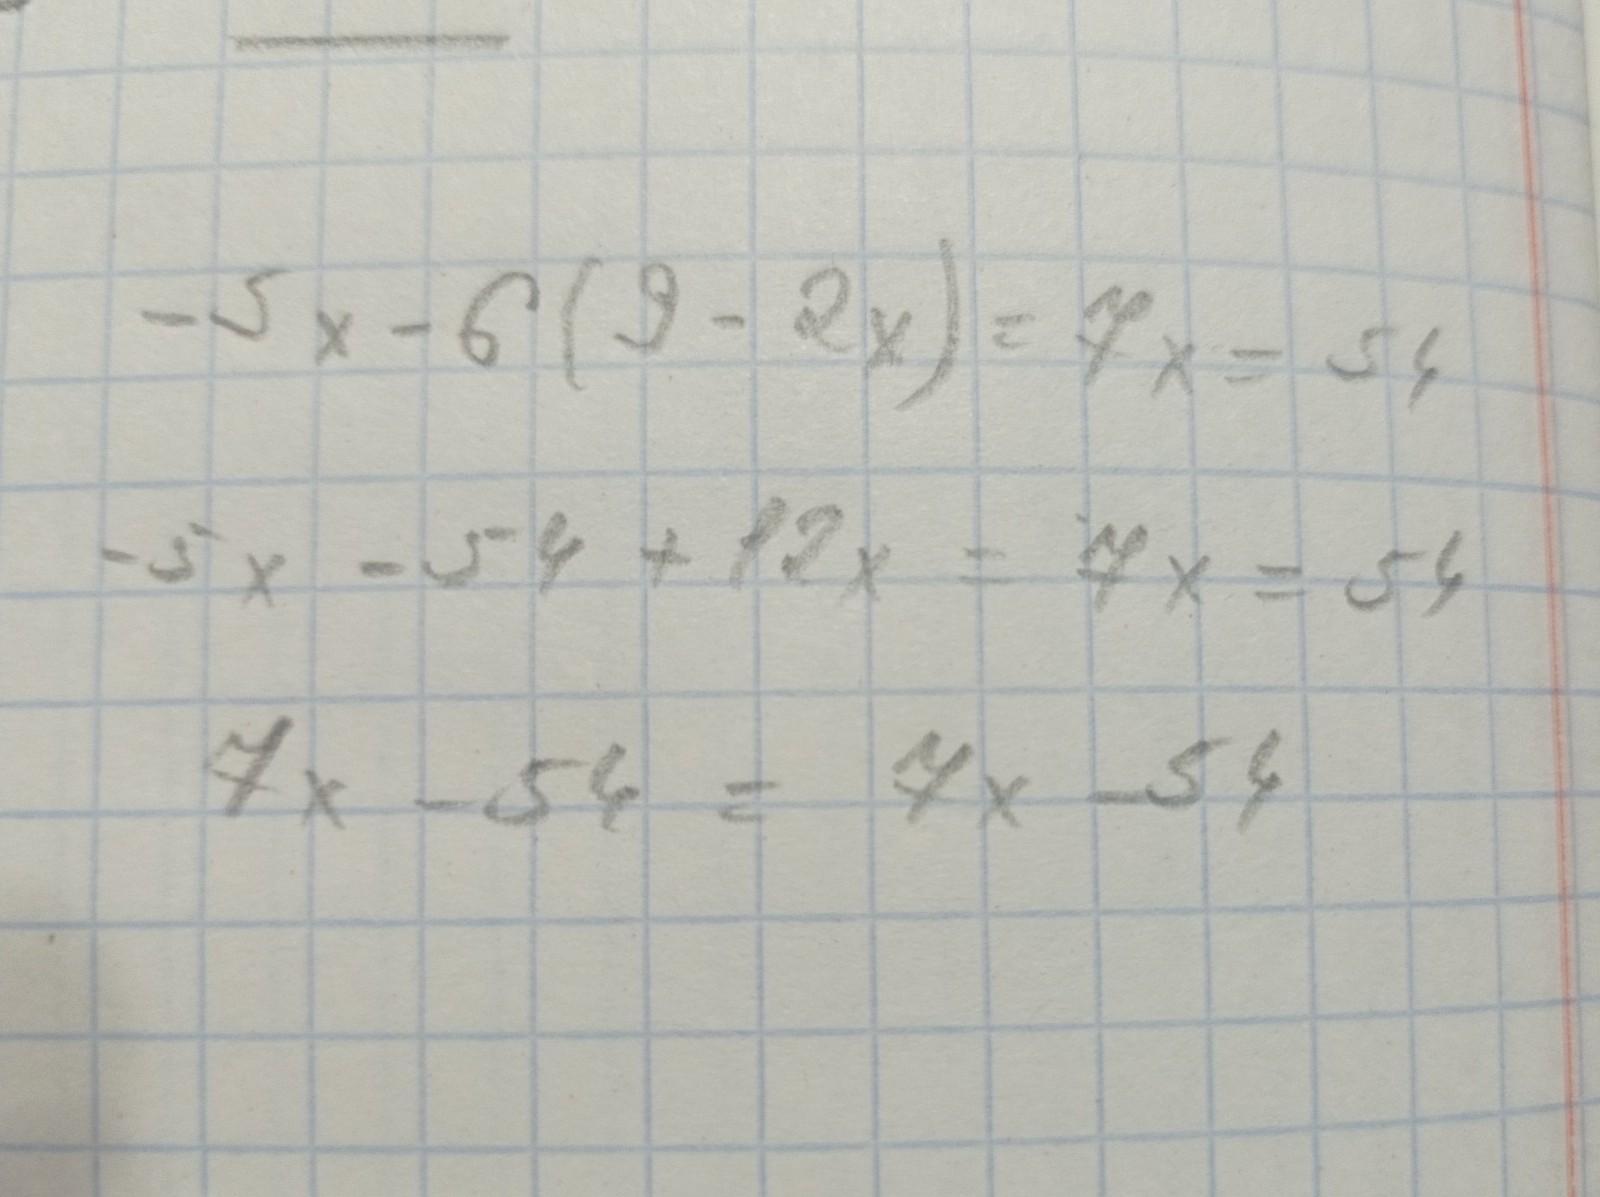 -5x - 6(9 - 2x) = 7x = 54
-5x - 54 + 12x = 7x = 54
7x - 54 = 7x - 54